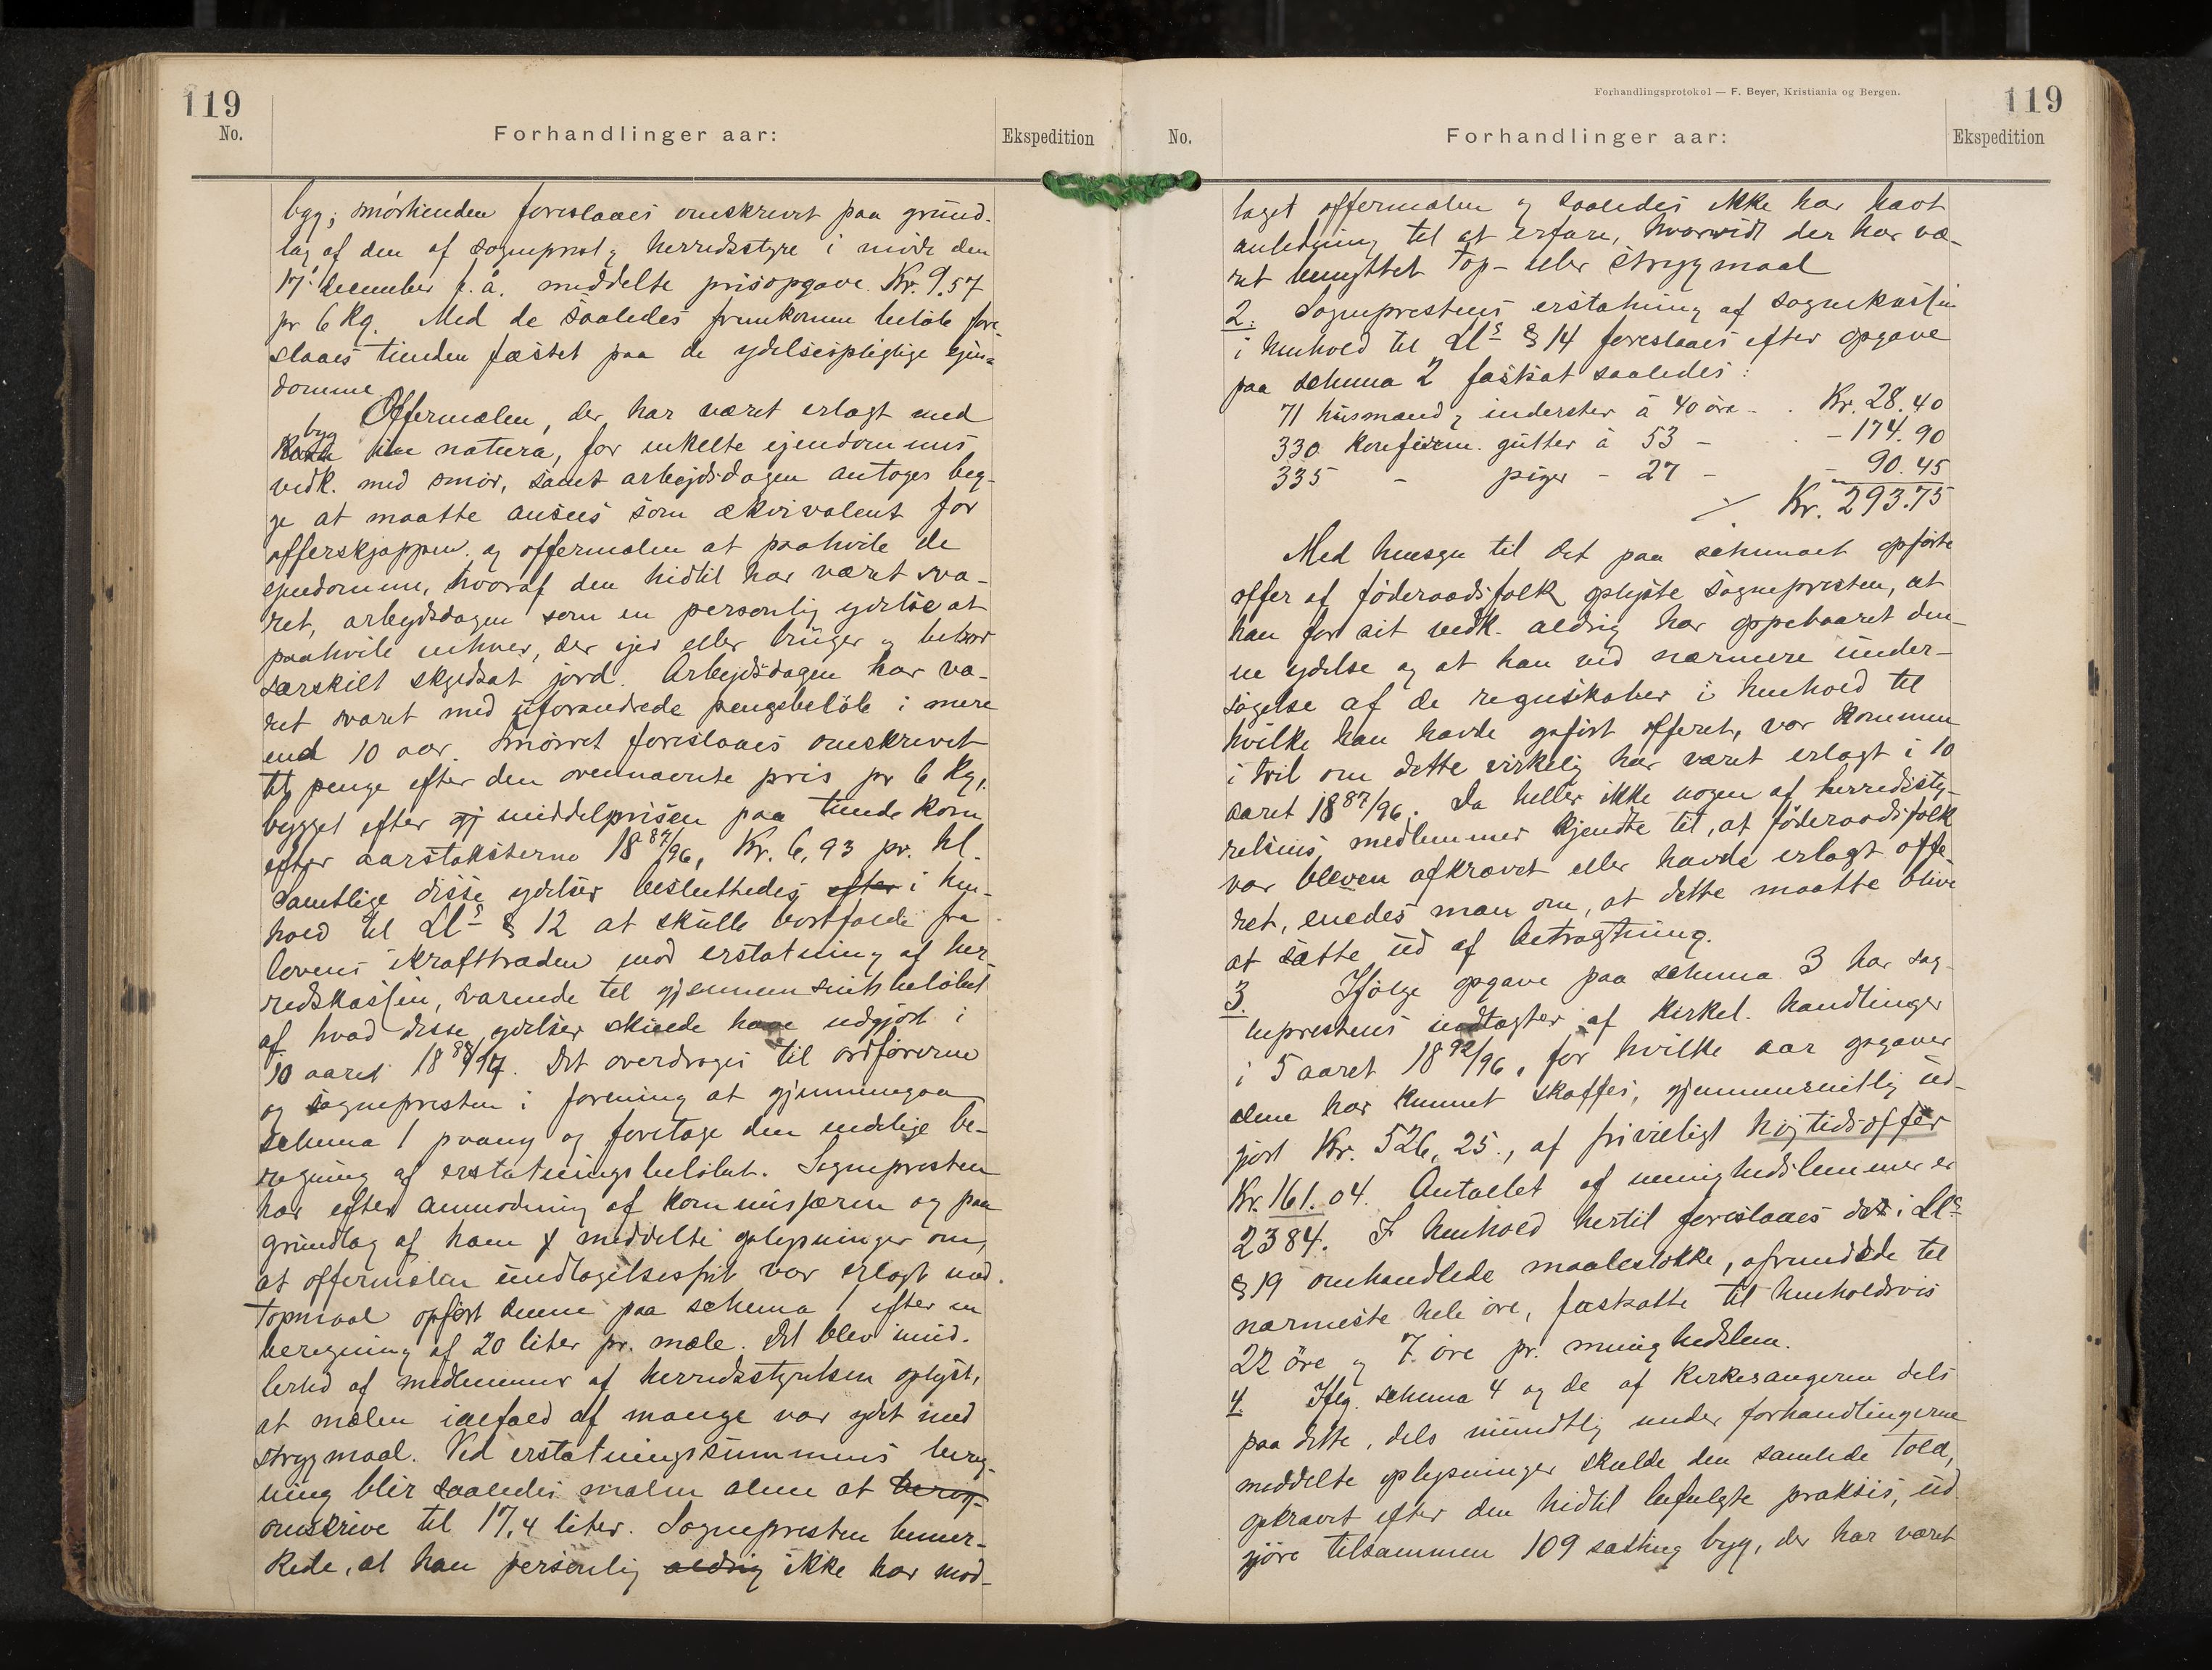 119
No.
Forhandlinger aar:
Ekspedition
byg; smørtienden foreslaaes omskrevet paa grund-
lag af den af sogneprest og herredsstyre i møde den
17. december f. å. meddelte prisopgave Kr. 9.57
pr 6 Kg. Med de saaledes fremkomne beløb fore-
slaaes tienden fæstet paa de ydelsespligtige ejen-
domme
Offermælen, der har været erlagt med
byg
Korn in natura, for enkelte ejendommes
vedk. med smør, samt arbejdsdagen antages beg-
ge at maatte ansees som ækvivalent for
offerskjæppen og offermælen at paahvile de
ejendomme, hvoraf den hidtil har været sva-
ret, arbejdsdagen som en personlig ydelse at
paahvile enhver, der ejer eller bruger og bebor
særskilt skyldsat jord. Arbejdsdagen har væ-
ret svaret med uforandrede pengebeløb i mere
end 10 aar. Smørret foreslaaes omskrevet
til penge efter den ovennævnte pris pr 6 Kg,
bygget efter gj middelprisen paa tiende korn
efter aarstaksterne 18 87/96, Kr. 6,93 pr. hl.
Samtlige disse ydelser besluttedes efter i hen-
hold til Ll.s § 12 at skulle bortfalde fra
lovens ikrafttræden mod erstatning af her-
redskassen, svarende til gjennemsnitsbeløbet
af hvad disse ydelser skulde have udgjort i
10 aaret 18 88/97. Det overdrages til ordføreren
og sognepresten i forening at gjennemgaa
schema 1 paany og foretage den endelige be-
regning af erstatningsbeløbet. Sognepresten
har efter anmodning af kommissæren og paa
grundlag af ham meddelte oplysninger om,
at offermælen undtagelsesfrit var erlagt med
topmaal opført denne paa schema 1 efter en
beregning af 20 liter pr. mæle. Det blev imid-
lertid af medlemmer af herredsstyrelsen oplyst,
at mælen ialfald af mange var ydet med
strygmaal. Ved erstatningssummens bereg-
ning blir saaledes mælen alene at bereg-
omskrive til 17,4 liter. Sognepresten bemær-
kede, at han personlig aldrig ikke har mod-
Forhandlingsprotokol — F. Beyer, Kristiania og Bergen.
119
No.
Forhandlinger aar:
Ekspedition
taget offermælen og saaledes ikke har havt
anledning til at erfare, hvorvidt der har væ-
ret benyttet top- eller strygmaal
2. Sogneprestens erstatning af sognekassen
i henhold til Ll.s § 14 foreslaaes efter opgave
paa schema 2 fastsat saaledes:
71 husmænd og inderster à 40 øre - . Kr. 28.40
330 konfirm. gutter à 53 - . - 174.90
335 - piger - 27 - - 90.45
·/. Kr. 293.75
Med hensyn til det paa schemaet opførte
offer af føderaadsfolk oplyste sognepresten, at
han for sit vedk. aldrig har oppebaaret den-
ne ydelse og at han ved nærmere under-
søgelse af de regnskaber i henhold til
hvilke han havde opført offeret, var kommen
i tvil om dette virkelig har været erlagt i 10
aaret 18 87/96. Da heller ikke nogen af herredssty-
relsens medlemmer kjendte til, at føderaadsfolk
var bleven afkrævet eller havde erlagt offe-
ret, enedes man om, at dette maatte blive
at sætte ud af betragtning.
3. Ifølge opgave paa schema 3 har sog-
neprestens indtægter af kirkel. handlinger
i 5 aaret 18 92/96, for hvilke aar opgaver
alene har kunnet skaffes, gjennemsnitlig ud-
gjort Kr. 526,25., af frivilligt højtidsoffer
Kr. 161.04. Antallet af menighedslemmer er
2384. I henhold hertil foreslaaes de i Ll.s
§ 19 omhandlede maalestokke, afrundede til
nærmeste hele øre, fastsatte til henholdsvis
22 øre og 7 øre pr. menighedslem.
4. Iflg. schema 4 og de af kirkesangeren dels
paa dette, dels mundtlig under forhandlingerne
meddelte oplysninger skulde den samlede told,
opkrævet efter den hidtil befulgte praksis, ud-
gjøre tilsammen 109 sætting byg, der har været